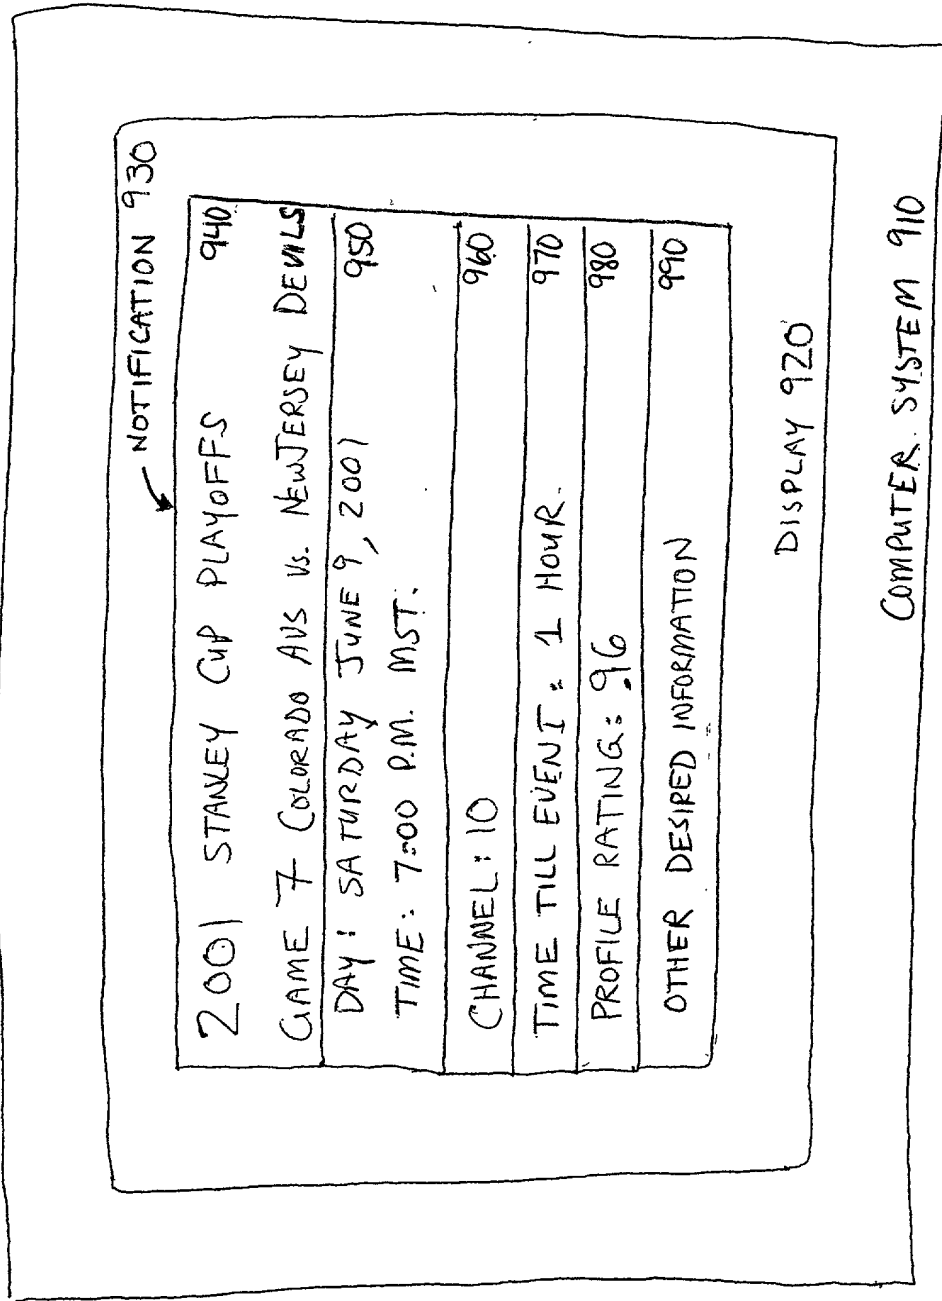 NOTIFICATION 930
2001 STANLEY CUP PLAYOFFS 940
GAME 7 COLORADO AVS Vs. NEW JERSEY DEVILS
DAY: SATURDAY JUNE 9, 2001 950
TIME: 7:00 P.M. MST.
CHANNEL: 10 960
TIME TILL EVENT: 1 HOUR. 970
PROFILE RATING: .96 980
OTHER DESIRED INFORMATION 990
DISPLAY 920
COMPUTER SYSTEM 910